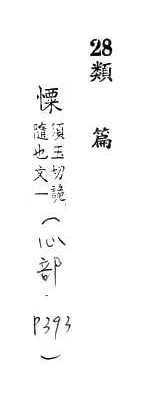 28類篇
慄須玉切詭
隨也文一
（心部·P393）